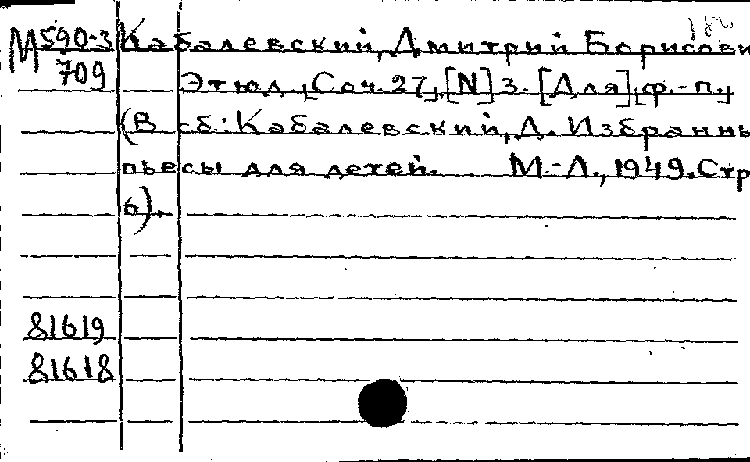 М 590-3 Кабалевский, Дмитрий Борисови
709 Этюд, [Соч. 27], [N] 3. [Для] [ф.-п.]
(В сб: Кабалевский, Д. Избранны
пьесы для детей. М.-Л., 1949. Стр
6).
81619
81618